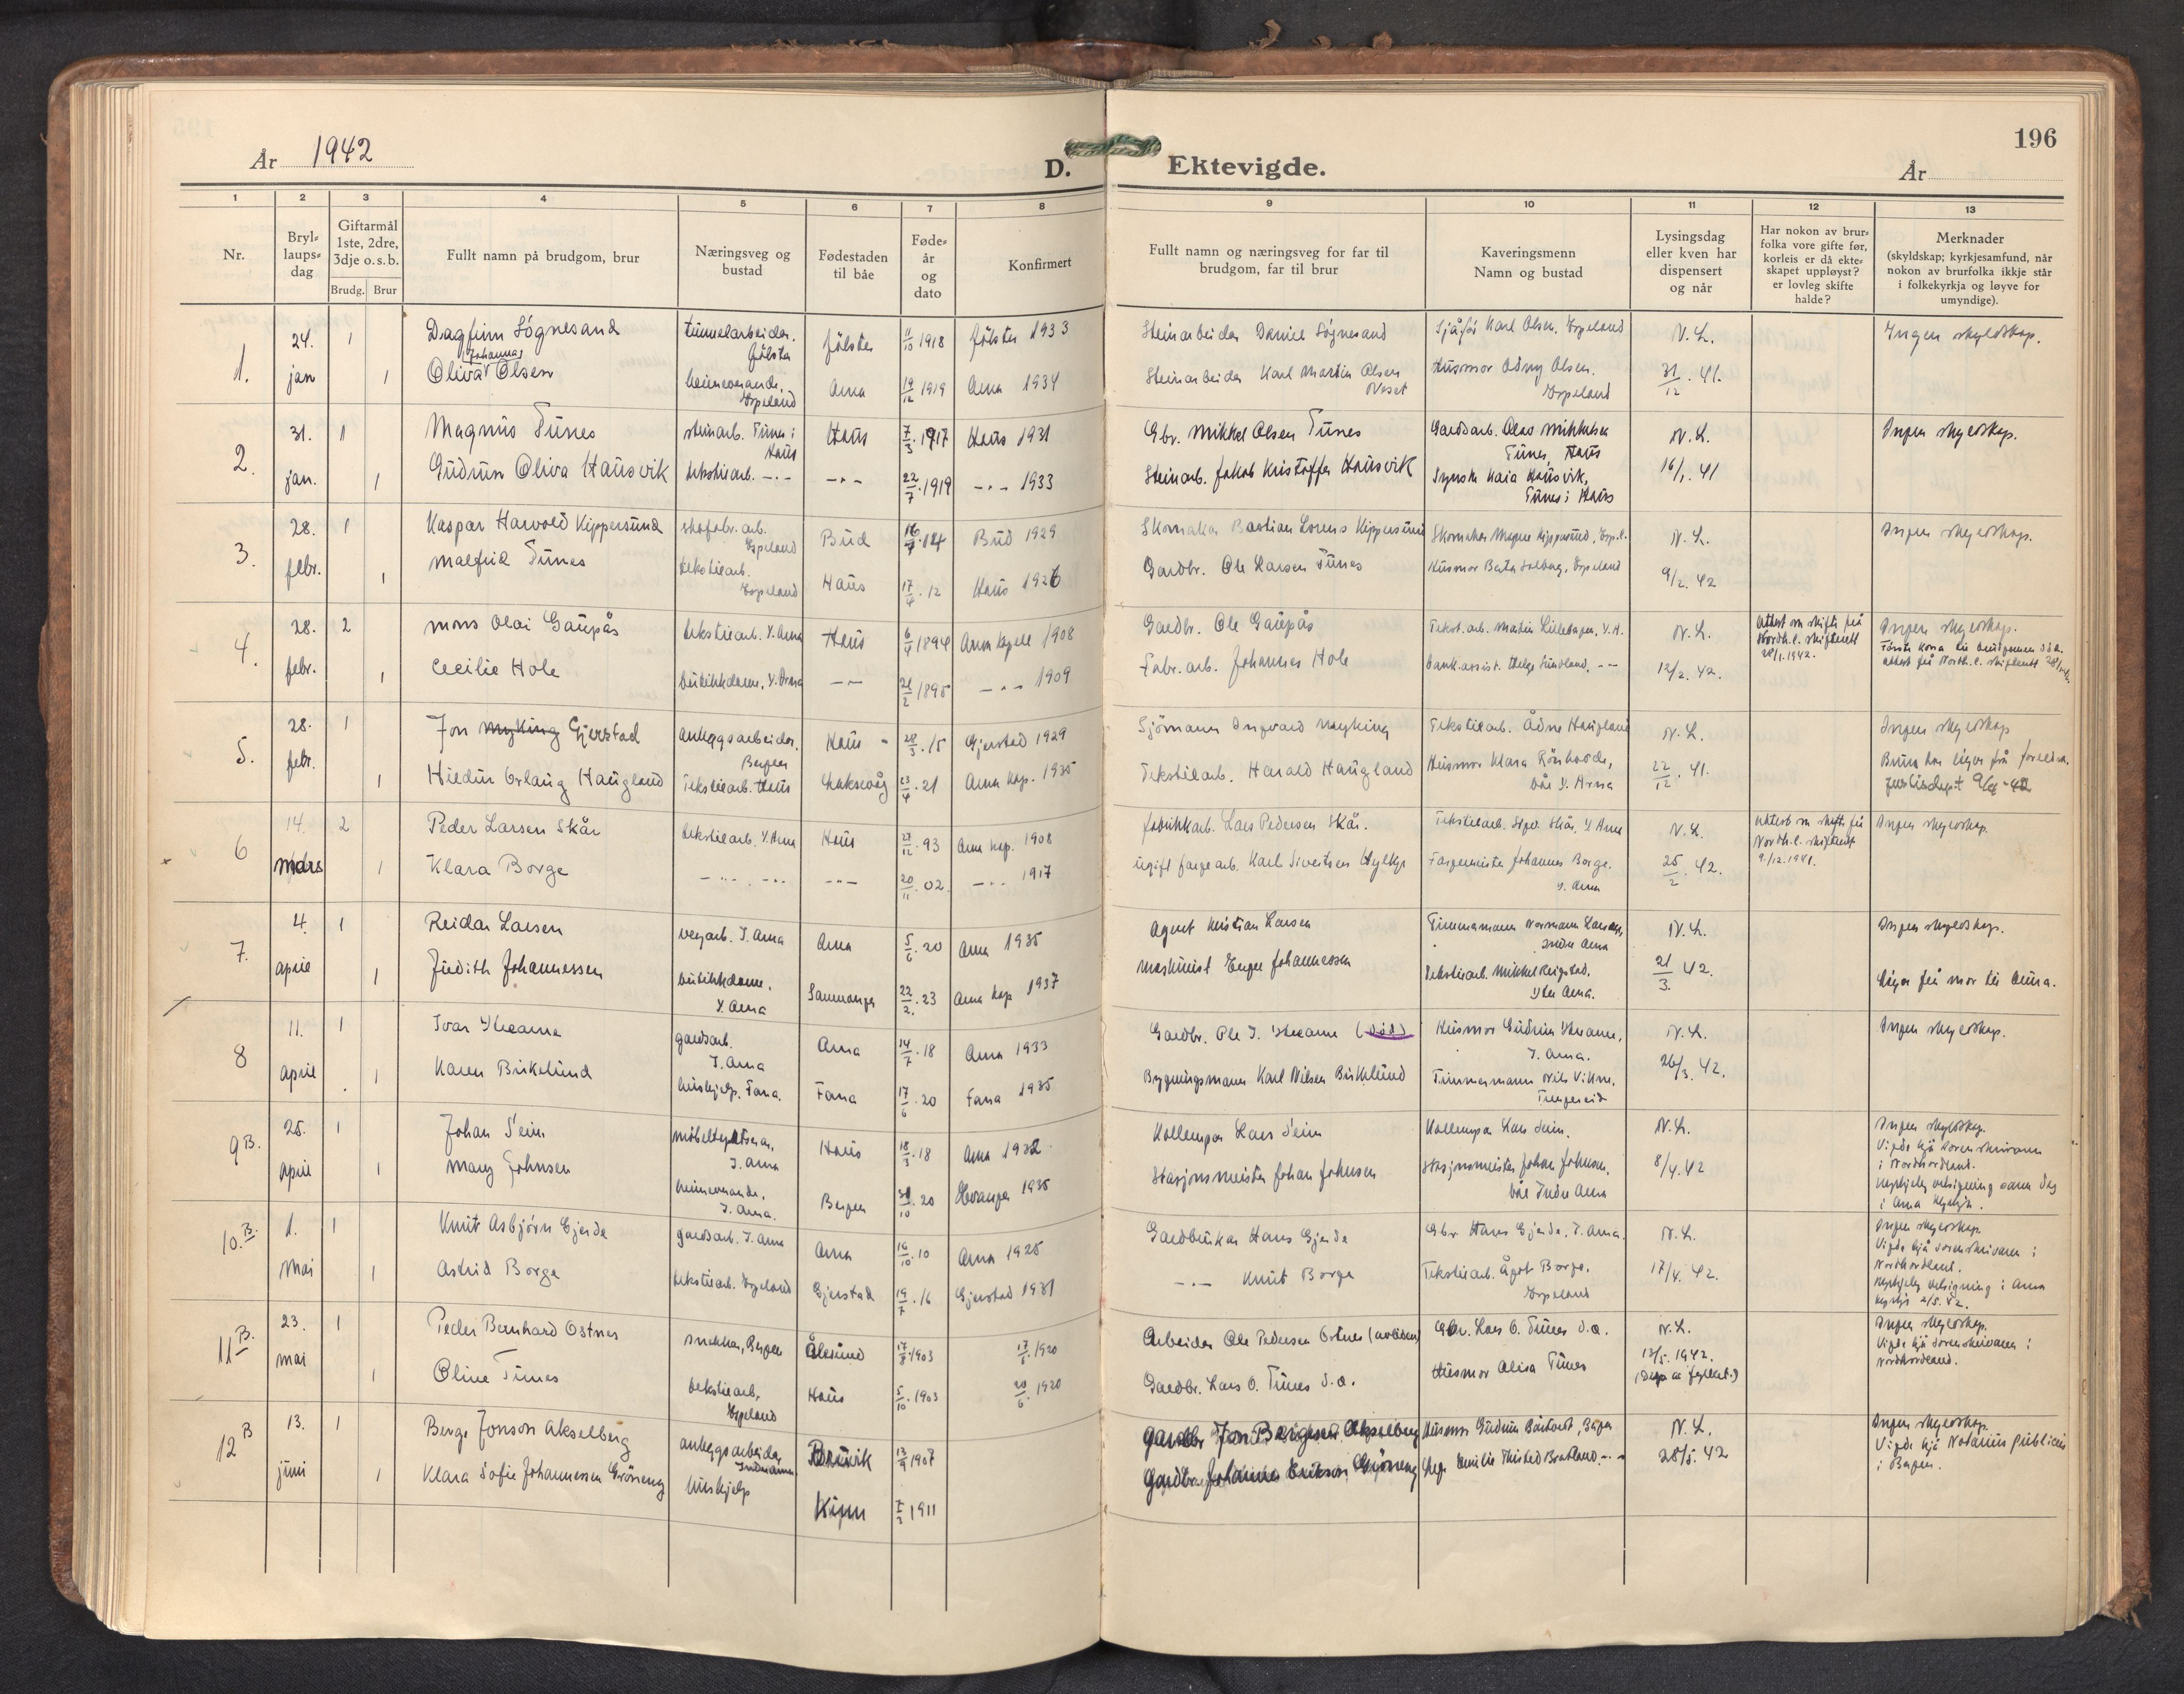 År 1942
D. Ektevigde.
196
År
1 2 3 4 5 6 7 8 9 10 11 12 13
Nr.
Bryl-
laups-
dag
Giftarmål
1ste, 2dre,
3dje o.s.b.
Brudg. Brur
Fullt namn på brudgom, brur
Næringsveg og
bustad
Fødestaden
til båe
Føde-
år
og
dato
Konfirmert
Fullt namn og næringsveg for far til
brudgom, far til brur
Kaveringsmenn
Namn og bustad
Lysingsdag
eller kven har
dispensert
og når
Har nokon av brur-
folka vore gifte før,
korleis er då ekte-
skapet uppløyst?
er lovleg skifte
halde?
Merknader
(skyldskap; kyrkjesamfund, når
nokon av brurfolka ikkje står
i folkekyrkja og løyve for
umyndige).
1. 24. jan
1 Dagfinn Sögnesand tunnelarbeider. Jölster Jölster 11/10 1918 Jölster 1933 Steinarbeider Daniel Sögnesand Sjåfør Karl Olsen, Espeland N.L. Ingen skyldskap.
1 Oliva (Johanna) Olsen heimeverande, Espeland Arna 19/12 1919 Arna 1934 Steinarbeider Karl Martin Olsen Neset Husmor Odny Olsen. Espeland 31/12. 41.
2. 31. jan.
1 Magnus Tunes steinarb. Tunes i Haus Haus 7/3. 1917 Haus 1931 Gbr. Mikkel Olsen Tunes Gardsarb. Olav Mikkelsen Tunes, Haus N.L. Ingen skyldskap.
1 Gudrun Oliva Hausvik tekstilarb. -"- -"- 22/7. 1919 -"- 1933 Steinarb. Jakob Kristoffer Hausvik Syerske Kaia Hausvik, Tunes i Haus 16/1. 41
3. 28. febr.
1 Kaspar Harvold Kippersund skofabr. arb. Espeland Bud 16/7. 14 Bud 1929 Skomaker Bastian Lorens Kippersund Skomaker Magne Kippersund, Esp.l. N.L. Ingen skyldskap.
1 Malfrid Tunes tekstilarb. Espeland Haus 17/4. 12 Haus 1926 Gardbr. Ole Larsen Tunes Husmor Berta Solberg, Espeland 9/2. 42
4. 28. febr.
2 Mons Olai Gaupås tekstilarb. Y. Arna Haus 6/4 1894 Arna kapell 1908 Gardbr. Ole Gaupås N.L. Attest om skifte frå Nordh.l. skifterett 28/1. 1942. Ingen skyldskap.
1 Cecilie Hole butikkdame, Y. Arna -"- 21/2 1895 -"- 1909 Fabr. arb. Johannes Hole 12/2. 42.
5. 28. febr.
1 Jon Myking Gjerstad anleggsarbeider, Bergen Haus 28/3. 15 Gjerstad 1929 Sjömann Ingvard Myking Tekstilarb. Ådne Haugland N.L. Ingen skyldskap
1 Hildur Erlaug Haugland Tekstilarb. Haus Laksevåg 23/4. 21 Arna kap. 1935 Tekstilarb. Harald Haugland Husmor Klara Rönhovde, båe Y. Arna 22/12. 41.
6 14. mars
2 Peder Larsen Skår tekstilarb. Y. Arna Haus 27/12. 93 Arna kap. 1908 fabrikkarb. Lars Pedersen Skår. N.L. Attest om skifte frå Nordh.l. skifterett 9/12. 1941. Ingen skyldskap.
1 Klara Borge -"- -"- 20/11. 02. -"- 1917 ugift fargearb. Karl Sivertsen Fargemeister Johannes Borge. Y. Arna 25/2. 42.
7. 4. april
1 Reidar Larsen vegarb. I. Arna Arna 5/6. 20 Arna 1935 Agent Kristian Larsen Timmermann Normann Larsen, Indre Arna N.L. Ingen skyldskap.
1 Judith Johannessen butikkdame, Y. Arna Samnanger 22/2. 23 Arna kap 1937 Maskinist Johannessen Tekstilarb. Mikkel Reigstad. Ytre Arna. 21/3. 42. Löyve frå mor til bruna.
8 11. april
1 Ivar Ytrearne gardsarb. I. Arna Arna 14/7. 18 Arna 1933 Gardbr. Ole I. Ytrearne (död) Husmor Gudrun Ytrearne, I. Arna. N.L. Ingen skyldskap.
1 Karen Birkelund hushjelp. Fana. Fana 17/6. 20 Fana 1935 Bygningsmann Karl Nilsen Birkelund Timmermann Nils Vikne, 26/3. 42.
9 B. 25. april
1 Johan Seim möbeltapetserar, I. Arna Haus 18/3. 18 Arna 1932 Lars Seim Lars Seim. N.L. Ingen skyldskap. Vigde hjå sorenskrivaren i Nordhordland.
1 Mary Johnsen heimeverande, I. Arna. Bergen 31/10. 20 1935 Stasjonsmeister Johan Johnsen Stasjonsmeister Johan Johnsen, båe Indre Arna 8/4. 42 Kyrkjeleg velsigning same dag i Arna kyrkje.
10. B. 1. mai
1 Knut Asbjörn Gjerde gardsarb. I. Arna Arna 16/10. 10 Arna 1925 Gardbrukar Hans Gjerde Gbr. Hans Gjerde, I. Arna. N.L. Ingen skyldskap. Vigde hjå sorenskrivaren i Nordhordland.
1 Astrid Borge tekstilarb. Espeland Gjerstad 19/7. 16 Gjerstad 1931 -"- Knut Borge Tekstilarb. Ågot Borge, Espeland 17/4. 42. Kyrkjeleg velsigning i Arna kyrkje 2/5. 42.
11 B. 23. mai
1 Peder Bernhard Ostnes snekkar, Bergen Ålesund 17/8. 1903 17/6. 1920 Arbeider Ole Pedersen Ostnes (avliden) Gbr. Lars O. Tunes s.a. N.L. Ingen skyldskap. Vigde hjå sorenskrivaren i Nordhordland.
1 Oline Tunes tekstilarb, Espeland Haus 5/10. 1903 20/6. 1920 Gardbr. Lars O. Tunes s.a. Husmor Alisa Tunes 12/5. 1942.
12 B 13. juni
1 Berge Jonson Akselberg anleggsarbeider, Indrearna Bruvik 13/9 1907 Gardbr Jon Bergesen Akselberg Husmor Gudrun N.L. Ingen skyldskap. Vigde hjå Notarius publicus i Bergen.
1 Klara Sofie Johannessen Gröneng hushjelp Kinn 7/3 1911 Gardbr Johannes Erikson Gröneng 28/5. 42